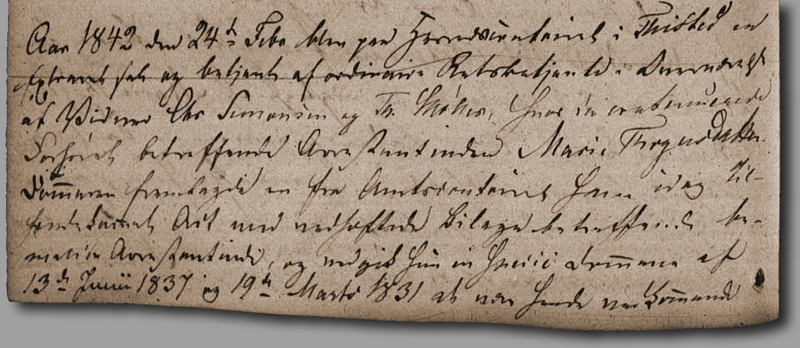 Aar 1842 den 24de Febr blev paa Herredscontoiret i Thisted en
Extraret sat og betjent af ordinaire Retsbetjente i Overværelse
af Vidner Chr Simonsen og Th. Møller, hvor da continuerede
Forhøret betreffende Arrestantinden Marie Thygesdatter.
Dommeren fremlagde en fra Amtscontoiret ham idag til-
Act med vedhæftede Bilage betreffende be-
meldte Arrestantinde, og Domme af
13de Junii 1837 og 19de Marts 1831 at være hende vedkommende